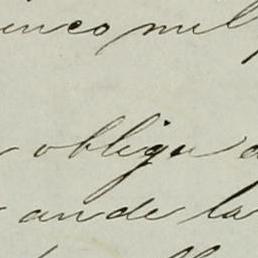 cinco mil
obliga a
ande la